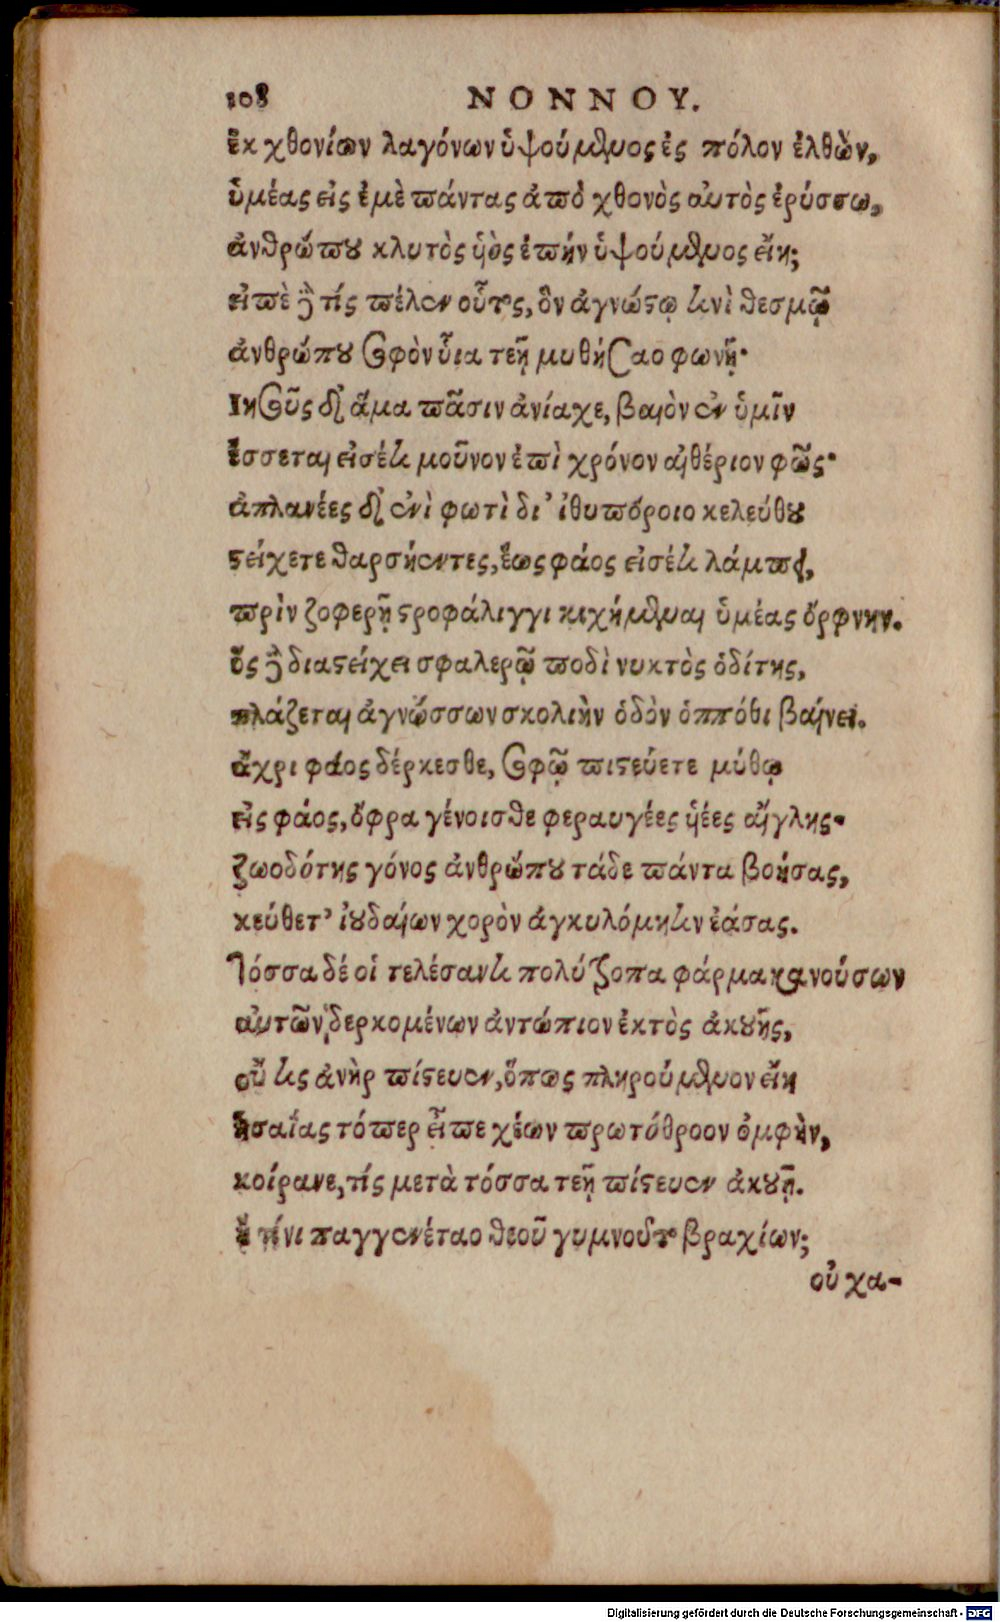 108 ΝΟΝΝΟΥ.
ἐκ χθονίων λαγόνων ὑψούμενος ἐς πόλον ἐλθὼν,
ὑμέας εἰς ἐμὲ πάντας ἀπὸ χθονὸς αὐτὸς ἐρύσσω,
ἀνθρώπου κλυτὸς ὑὸς ἐπὴν ὑψούμενος εἴη;
εἰπὲ ϗ τίς πέλεν οὗτος, ὃν ἀγνώστῳ τινὶ θεσμῷ
ἀνθρώπου σφὸν ὗια τεῇ μυθήσαο φωνῇ·
Ιησοῦς δ' ἅμα πᾶσιν ἀνίαχε, βαιὸν ἐν ὑμῖν
ἔσσεται εἰσέτι μοῦνον ἐπὶ χρόνον αἰθέριον φῶς·
ἀπλανέες δ' ἐνὶ φωτὶ δι' ἰθυπόροιο κελεύθου
στείχετε θαρσήεντες, ἕως φάος εἰσέτι λάμπει,
πρὶν ζοφερῇ στροφάλιγγι κιχήμεναι ὑμέας ὄρφνην.
ὃς ϗ διαστείχει σφαλερῷ ποδὶ νυκτὸς ὁδίτης,
πλάζεται ἀγνώσσων σκολιὴν ὁδὸν ὁππόθι βαίνει.
ἄχρι φάος δέρκεσθε, σφῷ πιστεύετε μύθῳ
εἰς φάος, ὄφρα γένοισθε φεραυγέες ὑέες αἴγλης·
ζωοδότης γόνος ἀνθρώπου τάδε πάντα βοήσας,
κεύθετ' ἰουδαίων χορὸν ἀγκυλόμητιν ἐάσας.
Τόσσα δέ οἱ τελέσαντι πολύτροπα φάρμακα νούσων
αὐτῶν δερκομένων ἀντώπιον ἐκτὸς ἀκουῆς,
οὔ τις ἀνὴρ πίστευεν, ὅπως πληρούμενον εἴη
ἠσαΐας τόπερ εἶπε χέων πρωτόθροον ὀμφὴν,
κοίρανε, τίς μετὰ τόσσα τεῇ πίστευεν ἀκουῇ.
ἢ τίνι παγγενέταο θεοῦ γυμνοῦτο βραχίων;
οὐ χα-
Digitalisierung gefördert durch die Deutsche Forschungsgemeinschaft - DFG